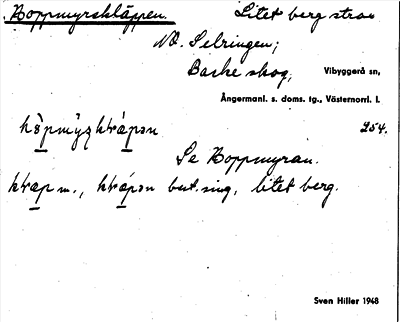 Koppmyrskläppen. Litet berg strax
NO. Selringen;
Backe skog, Vibyggerå sn,
Ångermanl. s. doms. tg., Västernorrl. l.
254.
Se Koppmyran.
best. sing. litet berg.
Sven Hiller 1948